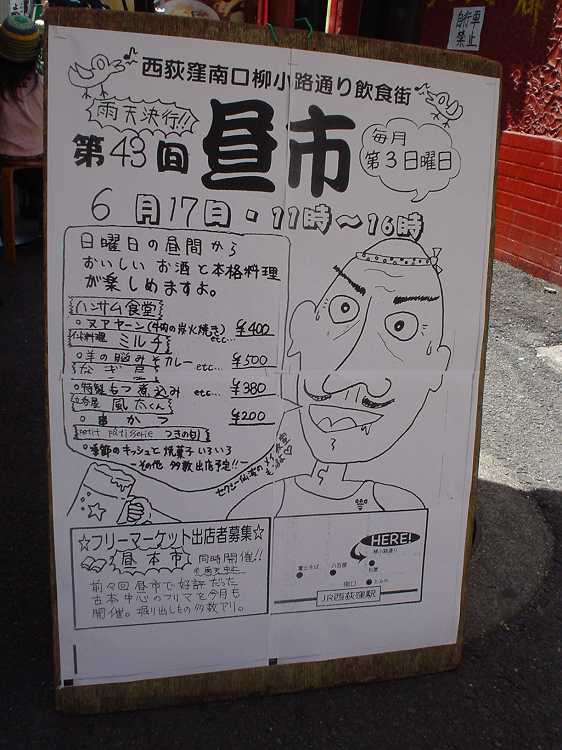 自転車
禁止
西荻窪南口柳小路通り飲食街
雨天決行!!
第43回
昼市
毎月
第3日曜日
6月17日・11時〜16時
日曜日の昼間から
おいしい お酒と本格料理
が楽しめますよ。
ハンサム食堂
○ヌアヤーン(牛肉の炭火焼き) ¥400
etc…
インド料理 ミルチ
○羊の脳みそカレー etc… ¥500
○特製もつ煮込み etc… ¥380
立呑屋 風太くん
○串かつ ¥200
petit pâtisserie つきの町
○季節のキッシュと焼菓子いろいろ
ーその他 多数出店予定!!ー
☆フリーマーケット出店者募集☆
昼本市
同時開催!!
前々回昼市で好評だった
古本中心のフリマを今月も
開催。掘り出しもの多数アリ。
HERE!
柳小路通り
富士そば
八百屋
南口
JR西荻窪駅